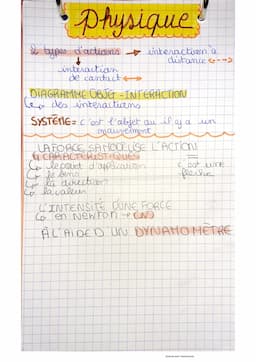 physique
2 types d'actions → interaction à
distance
↓ interaction
de contact
DIAGRAMME OBJG-INTERACTION
↳ des interactions
SYSTÈME= c'est l'objet au il y a un
mouvement
LA FORCE SA MODELISE L'ACTION
4 CARACTERISTIQUES
↳ le point d'application c'est une
↳ le sens flèche
↳ la direction
↳ la valeur
L'INTENSITÉ D'UNE FORCE
↳ en Newton → (N)
À L'AIDE D UN DYNAMOMETRE